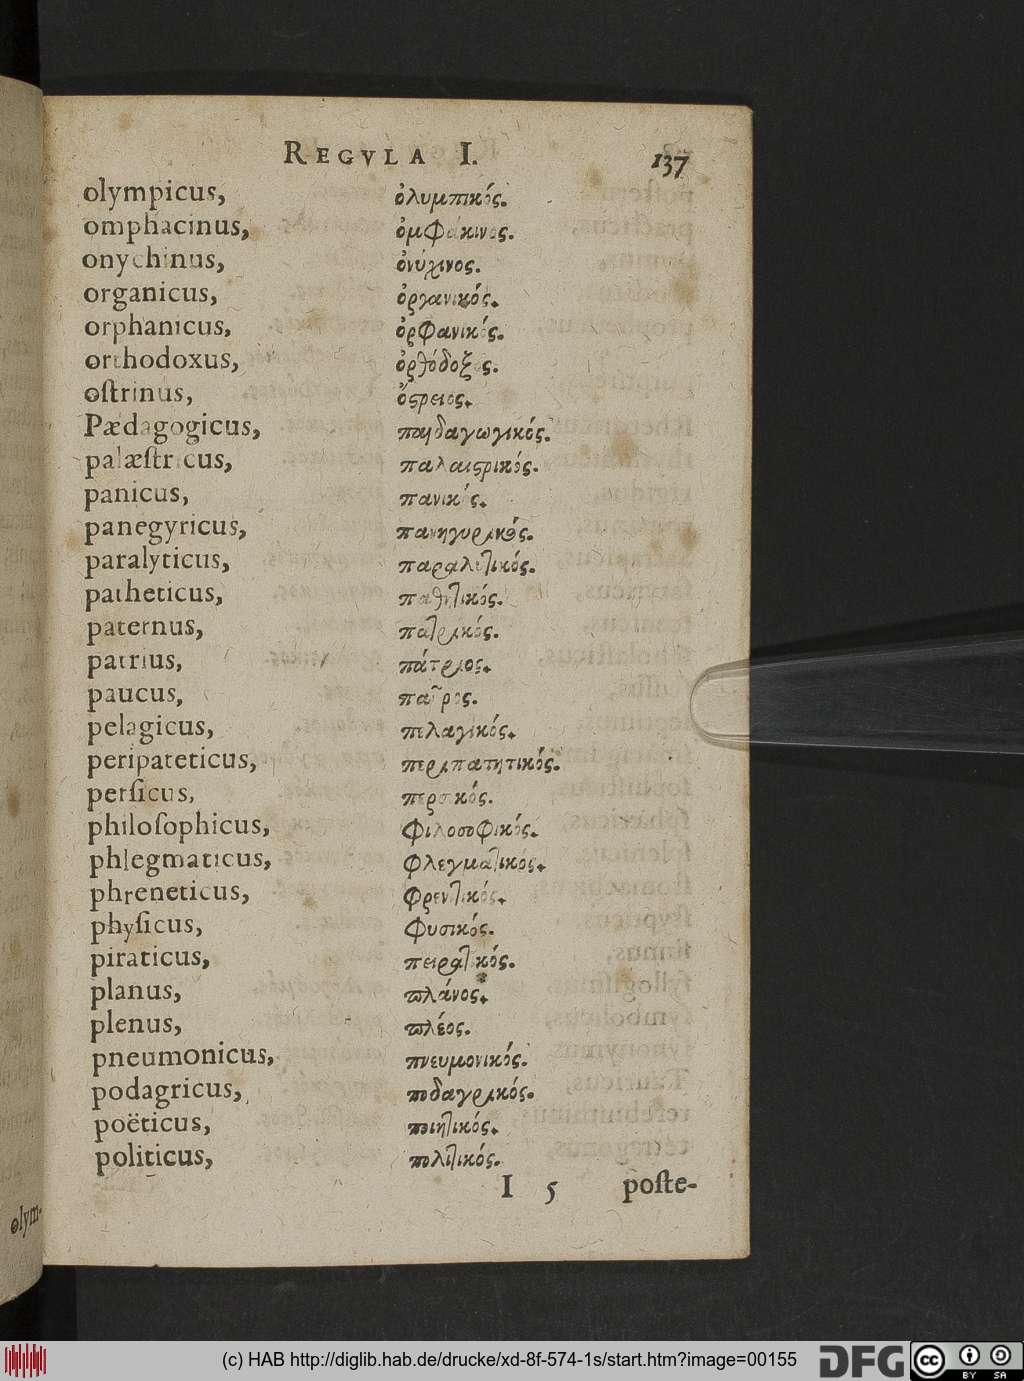 REGVLA I. 137
olympicus, ὀλυμπικός.
omphacinus, ὀμφάκινος.
onychinus, ὀνύχινος.
organicus, ὀργανικός.
orphanicus, ὀρφανικός.
orthodoxus, ὀρθόδοξος.
oſtrinus, ὄϛρειος.
Pædagogicus, παιδαγωγικός.
palæſtricus, παλαιϛρικός.
panicus, πανικός.
panegyricus, πανηγυρικός.
paralyticus, παραλυτικός.
patheticus, παθητικός.
paternus, πατρικός.
patrius, πάτριος.
paucus, παῦρος.
pelagicus, πελαγικός.
peripateticus, περιπατητικός.
perſicus, περσικός.
philoſophicus, φιλοσοφικός.
phlegmaticus, φλεγματικός.
phreneticus, φρενιτικός.
phyſicus, φυσικός.
piraticus, πειρατικός.
planus, πλάνος.
plenus, πλέος.
pneumonicus, πνευμονικός.
podagricus, ποδαγρικός.
poëticus, ποιητικός.
politicus, πολιτικός.
I 5 poſte-
olym-
(c) HAB http://diglib.hab.de/drucke/xd-8f-574-1s/start.htm?image=00155
DFG
cc
BY SA